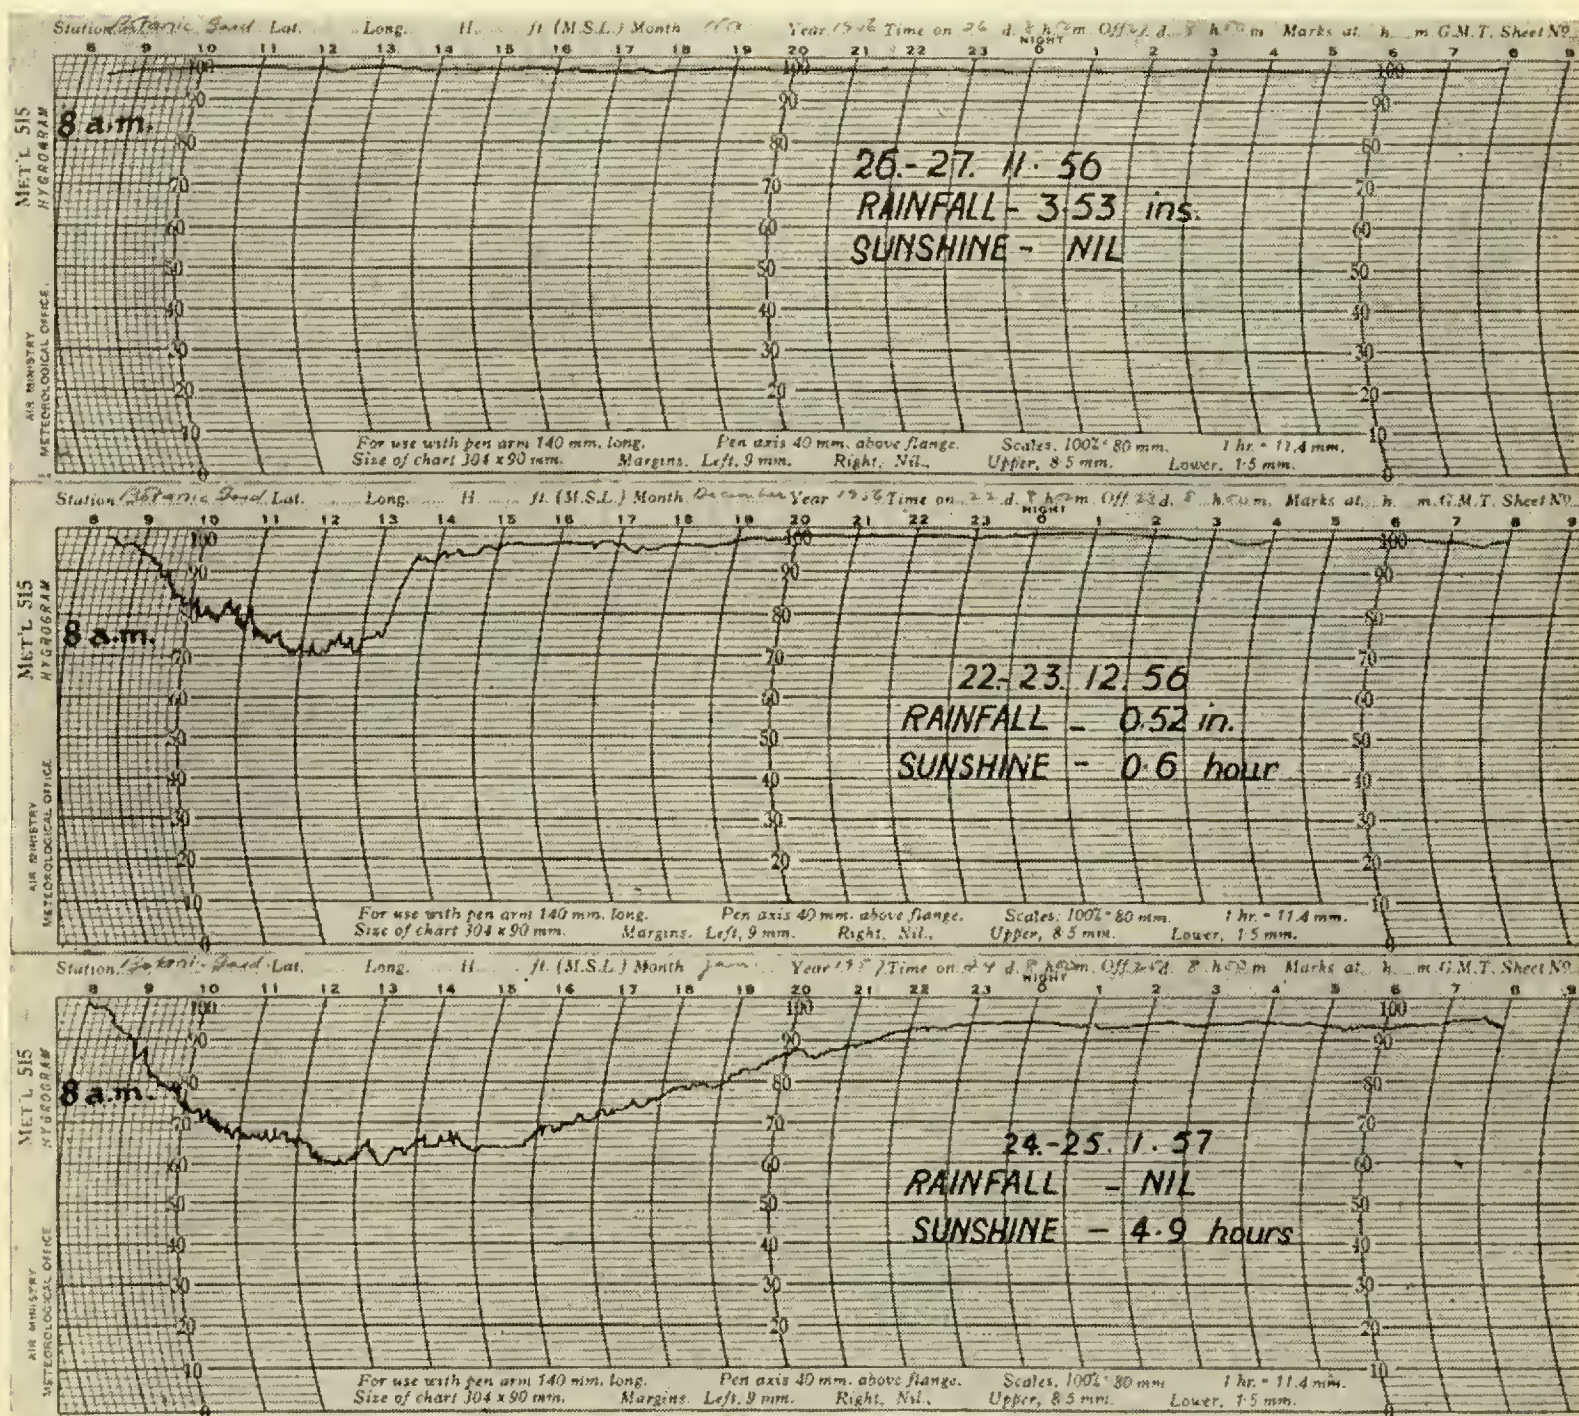 Station Botanic Gard. Lat. Long. H. ft (M.S.L.) Month Year 1956 Time on 26 d. 8 h m Off 27 d. 8 h m Marks at h. m. G.M.T. Sheet Nº
NIGHT
8 9 10 11 12 13 14 15 16 17 18 19 20 21 22 23 0 1 2 3 4 5 6 7 8 9
MET'L 515
HYGROGRAM
AIR MINISTRY
METEOROLOGICAL OFFICE
8 a.m.
100 100 100
90 90 90
80 80 80
70 70 70
60 60 60
50 50 50
40 40 40
30 30 30
20 20 20
10 10
0 0
26.-27. 11. 56
RAINFALL - 3.53 ins.
SUNSHINE - NIL
For use with pen arm 140 mm. long. Pen axis 40 mm. above flange. Scales, 100% = 80 mm. 1 hr. = 11.4 mm.
Size of chart 304 x 90 mm. Margins. Left, 9 mm. Right, Nil., Upper, 8.5 mm. Lower, 1.5 mm.
Station Botanic Gard. Lat. Long. H. ft. (M.S.L.) Month December Year 1956 Time on 22 d. 8 h m. Off 23 d. 8 h m. Marks at h. m. G.M.T. Sheet Nº
NIGHT
8 9 10 11 12 13 14 15 16 17 18 19 20 21 22 23 0 1 2 3 4 5 6 7 8 9
MET'L 515
HYGROGRAM
AIR MINISTRY
METEOROLOGICAL OFFICE
8 a.m.
100 100 100
90 90 90
80 80 80
70 70 70
60 60 60
50 50 50
40 40 40
30 30 30
20 20 20
10 10
0 0
22.-23. 12. 56
RAINFALL - 0.52 in.
SUNSHINE - 0.6 hour
For use with pen arm 140 mm. long. Pen axis 40 mm. above flange. Scales, 100% = 80 mm. 1 hr. = 11.4 mm.
Size of chart 304 x 90 mm. Margins. Left, 9 mm. Right, Nil., Upper, 8.5 mm. Lower, 1.5 mm.
Station Botanic Gard. Lat. Long. H. ft. (M.S.L.) Month Jan. Year 1957 Time on 24 d. 8 h m. Off 25 d. 8 h m Marks at h. m. G.M.T. Sheet Nº
NIGHT
8 9 10 11 12 13 14 15 16 17 18 19 20 21 22 23 0 1 2 3 4 5 6 7 8 9
MET'L 515
HYGROGRAM
AIR MINISTRY
METEOROLOGICAL OFFICE
8 a.m.
100 100 100
90 90 90
80 80 80
70 70 70
60 60 60
50 50 50
40 40 40
30 30 30
20 20 20
10 10
0 0
24.-25. 1. 57
RAINFALL - NIL
SUNSHINE - 4.9 hours
For use with pen arm 140 mm. long. Pen axis 40 mm. above flange. Scales, 100% = 80 mm 1 hr. = 11.4 mm.
Size of chart 304 x 90 mm. Margins. Left, 9 mm. Right, Nil., Upper, 8.5 mm. Lower, 1.5 mm.